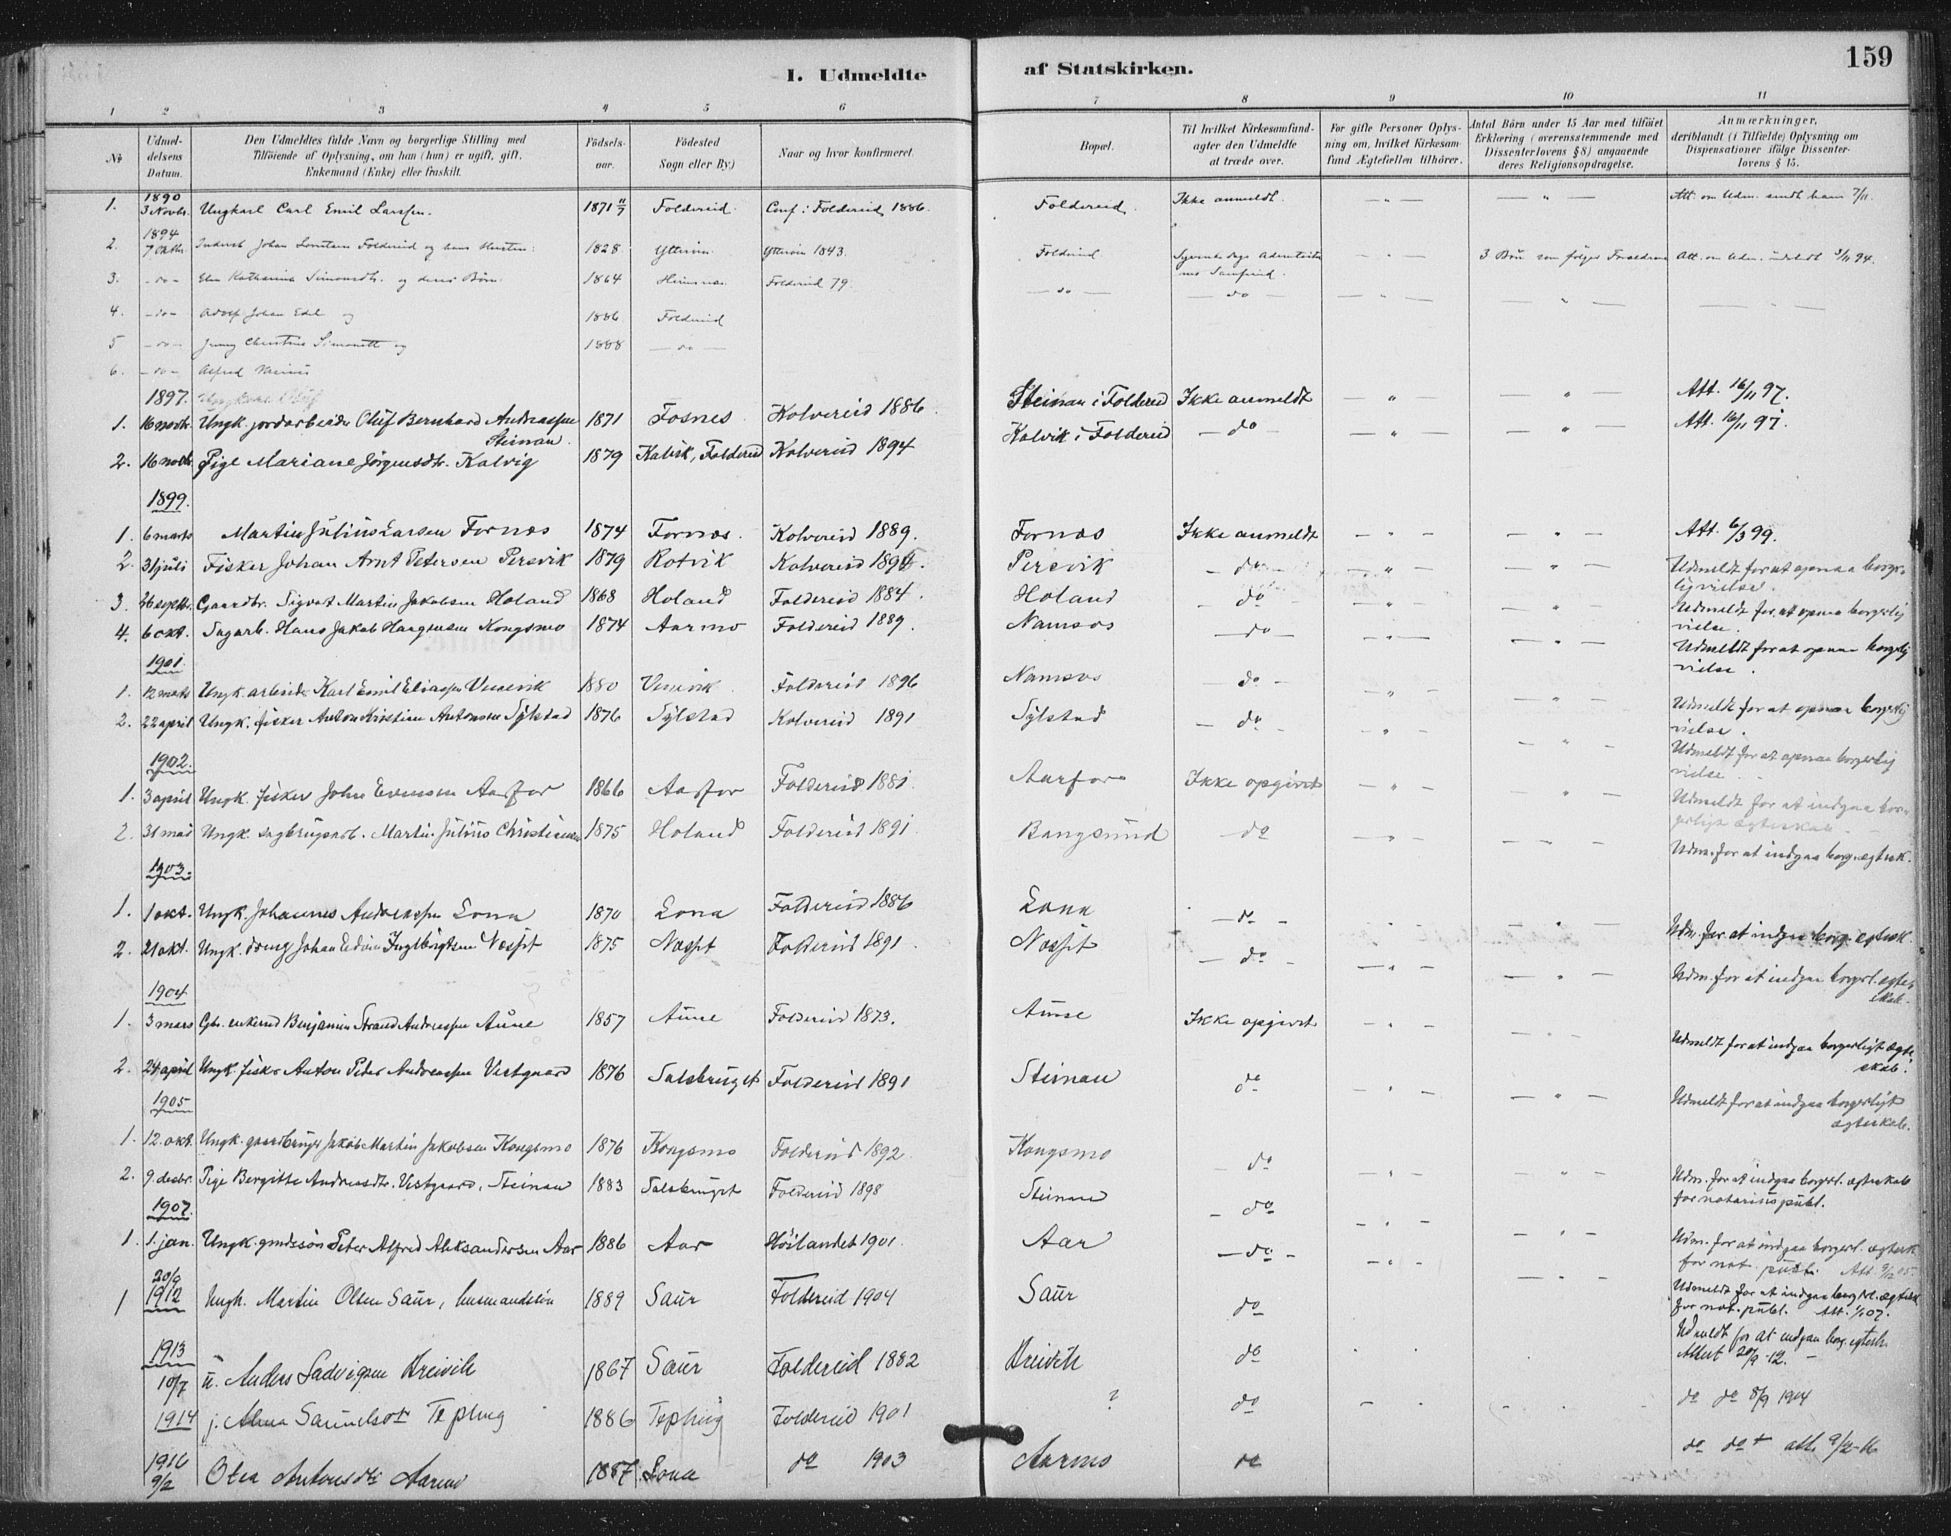 159
I. Udmeldte af Statskirken.
1 2 3 4 5 6 7 8 9 10 11
No
Udmeldelsens Datum.
Den Udmeldtes fulde Navn og borgerlige Stilling med Tilföiende af Oplysning, om han (hun) er ugift, gift, Enkemand (Enke) eller fraskilt.
Födselsaar.
Födested (Sogn eller By.)
Naar og hvor konfirmeret.
Bopæl.
Til hvilket Kirkesamfund agter den Udmeldte at træde over.
For gifte Personer Oplysning om, hvilket Kirkesamfund Ægtefællen tilhörer.
Antal Börn under 15 Aar med tilföiet Erklæring (overensstemmende med Dissenterlovens § 8) angaaende deres Religionsopdragelse.
Anmærkninger, deriblandt (i Tilfælde) Oplysning om Dispensationer ifölge Dissenterlovens § 15.
1890
1. 3 Novbr. Ungkarl Carl Emil Larssen. 1871 11/7 Foldereid. Conf. i Foldereid 1886. Foldereid. Ikke anmeldt. — " — — " — Att. om Udm. sendt ham 7/11
1894
2. 7 Oktbr. Johan Foldereid og hans Hustru: 1828 Ytterøen Ytterøen 1843. Foldereid Syvende Dags Adventisternes Samfund. — " — 3 Börn som følger Forældrene Att. om Udm. 3/11 94.
3. — do — Katharina Simonsdtr. og deres Børn 1864 Foldereid 79. — do — — do — — " — — " —
4. — do — Adolf Johan Edel og 1886 Foldereid
5 — do — Jenny Christine og 1888 — do —
6. — do — Alfred
1897.
1. 16 novbr. Ungk. jordarbeider Oluf Bernhard Andreassen Steinan. 1871 Fosnes. Kolvereid 1886. Steinan i Foldereid Ikke anmeldt — " — — " — Att. 16/11 97.
2. 16 novbr. Pige Mariane Jörgensdtr. Kalvig 1879 Kalvik, Foldereid Kolvereid 1894 Kalvik i Foldereid — do — — " — — " — Att. 16/11 97.
1899.
1. 6 marts Martin Julius Larsen Fornæs 1874 Fornæs. Kolvereid 1889. Fornæs Ikke anmeldt — " — — " — Att. 6/3 99.
2. 31 juli Fisker Johan Arnt Petersen Persvik 1879 Rotvik Kolvereid 1894. Persvik — do — — " — — " — Udmeldt for at opnaa borgerlig vielse.
3. 26 septbr. Gaardbr. Sigvat Martin Jakobsen Höland 1868 Höland Foldereid 1884. Höland — do — — " — — " — Udmeldt for at opnaa borgerlig vielse.
4. 6 okt. Sagarb. Hans Jakob Haagensen Kongsmo 1874 Aarmo Foldereid 1889. Namsos — do — — " — — " — Udmeldt for at opnaa borgerlig vielse.
1901.
1. 12 marts Ungk. arbeider Karl Emil Eliassen Vennevik 1880 Foldereid 1896 Namsos — do — — " — — " — Udmeldt for at opnaa borgerlig vielse.
2. 22 april Ungk. fisker Anton Kristian Antonsen Sylstad 1876 Sylstad Kolvereid 1891 Sylstad — do — — " — — " — Udmeldt for at opnaa borgerlig vielse.
1902.
1. 3 april Ungk. fisker John Evensen Aarfor 1866 Aarfor Foldereid 1881. Aarfor Ikke opgivet — " — — " — Udmeldt for at indgaa borgerligt ægteskab.
2. 31 mai Ungk. sagbrugsarb. Martin Julius Christiansen 1875 Höland Foldereid 1891 Bangsund do — " — — " — Udm. for at indgaa borg. ægtesk.
1903.
1. 1 okt. Ungk. Johannes Andreassen Lona 1870 Lona Foldereid 1886 Lona — do — — " — Udm. for at indgaa borg. egtesk.
2. 21 okt. Ungk. dreng Johan Edvin Ingebrigtsen Næsset 1875 Næsset Foldereid 1891. Næsset — do — — " — — " — Udm. for at indgaa borgerl. egteskab.
1904
1. 3 mars Gbr. enkemd Benjamin Strand Andreassen Aune 1857 Aune Foldereid 1873. Aune Ikke opgivet — " — — " — Udmeldt for at indgaa borgerligt ægteskab.
2. 24 april Ungk. fisker Anton Peder Andreassen Vestgaard 1876 Salsbruget Foldereid 1891 Steinan do — " — — " — Udmeldt for at indgaa borgerligt ægteskab.
1905
1. 12. okt. Ungk. gaardbruger Jakob Martin Jakobsen Kongsmo 1876 Kongsmo Foldereid 1892. Kongsmo — do — " — — " — Udm. for at indgaa borgerl. ægteskab for notarius publ.
2. 9. desbr. Pige Bergitte Andreasdtr. Vestgaard, Steinan 1883 Salsbruget Foldereid 1898 Steinan — do — " — — " — Udm. for at indgaa borgerl. ægtesk. for not. publ. Att. 9/12 05.
1907.
1. 1. jan. Ungk. gmdssøn Peter Alfred Aleksandersen Aar 1886 Aar Höilandet 1901. Aar — do — — " — — " — Udmeldt for at indgaa borgerl. ægtesk for not. publ. Att. 1/1 07.
20/9 1912
1 Ungk. Martin Olsen Saur, husmandssön 1889 Saur Foldereid 1904 Saur do Udmeldt for at indgaa borg. egtesk. Attest 20/9-12.
1913
10/7 u. Anders Ludvigsen 1867 Saur Foldereid 1882 do do do 8/9 1904
1914 j. Alma 1886 Foldereid 1901 ? do
1916
9/2 Olea Antonsdtr Aarmo 1887 Lona do 1903 Aarmo do do do att. 9/2-16